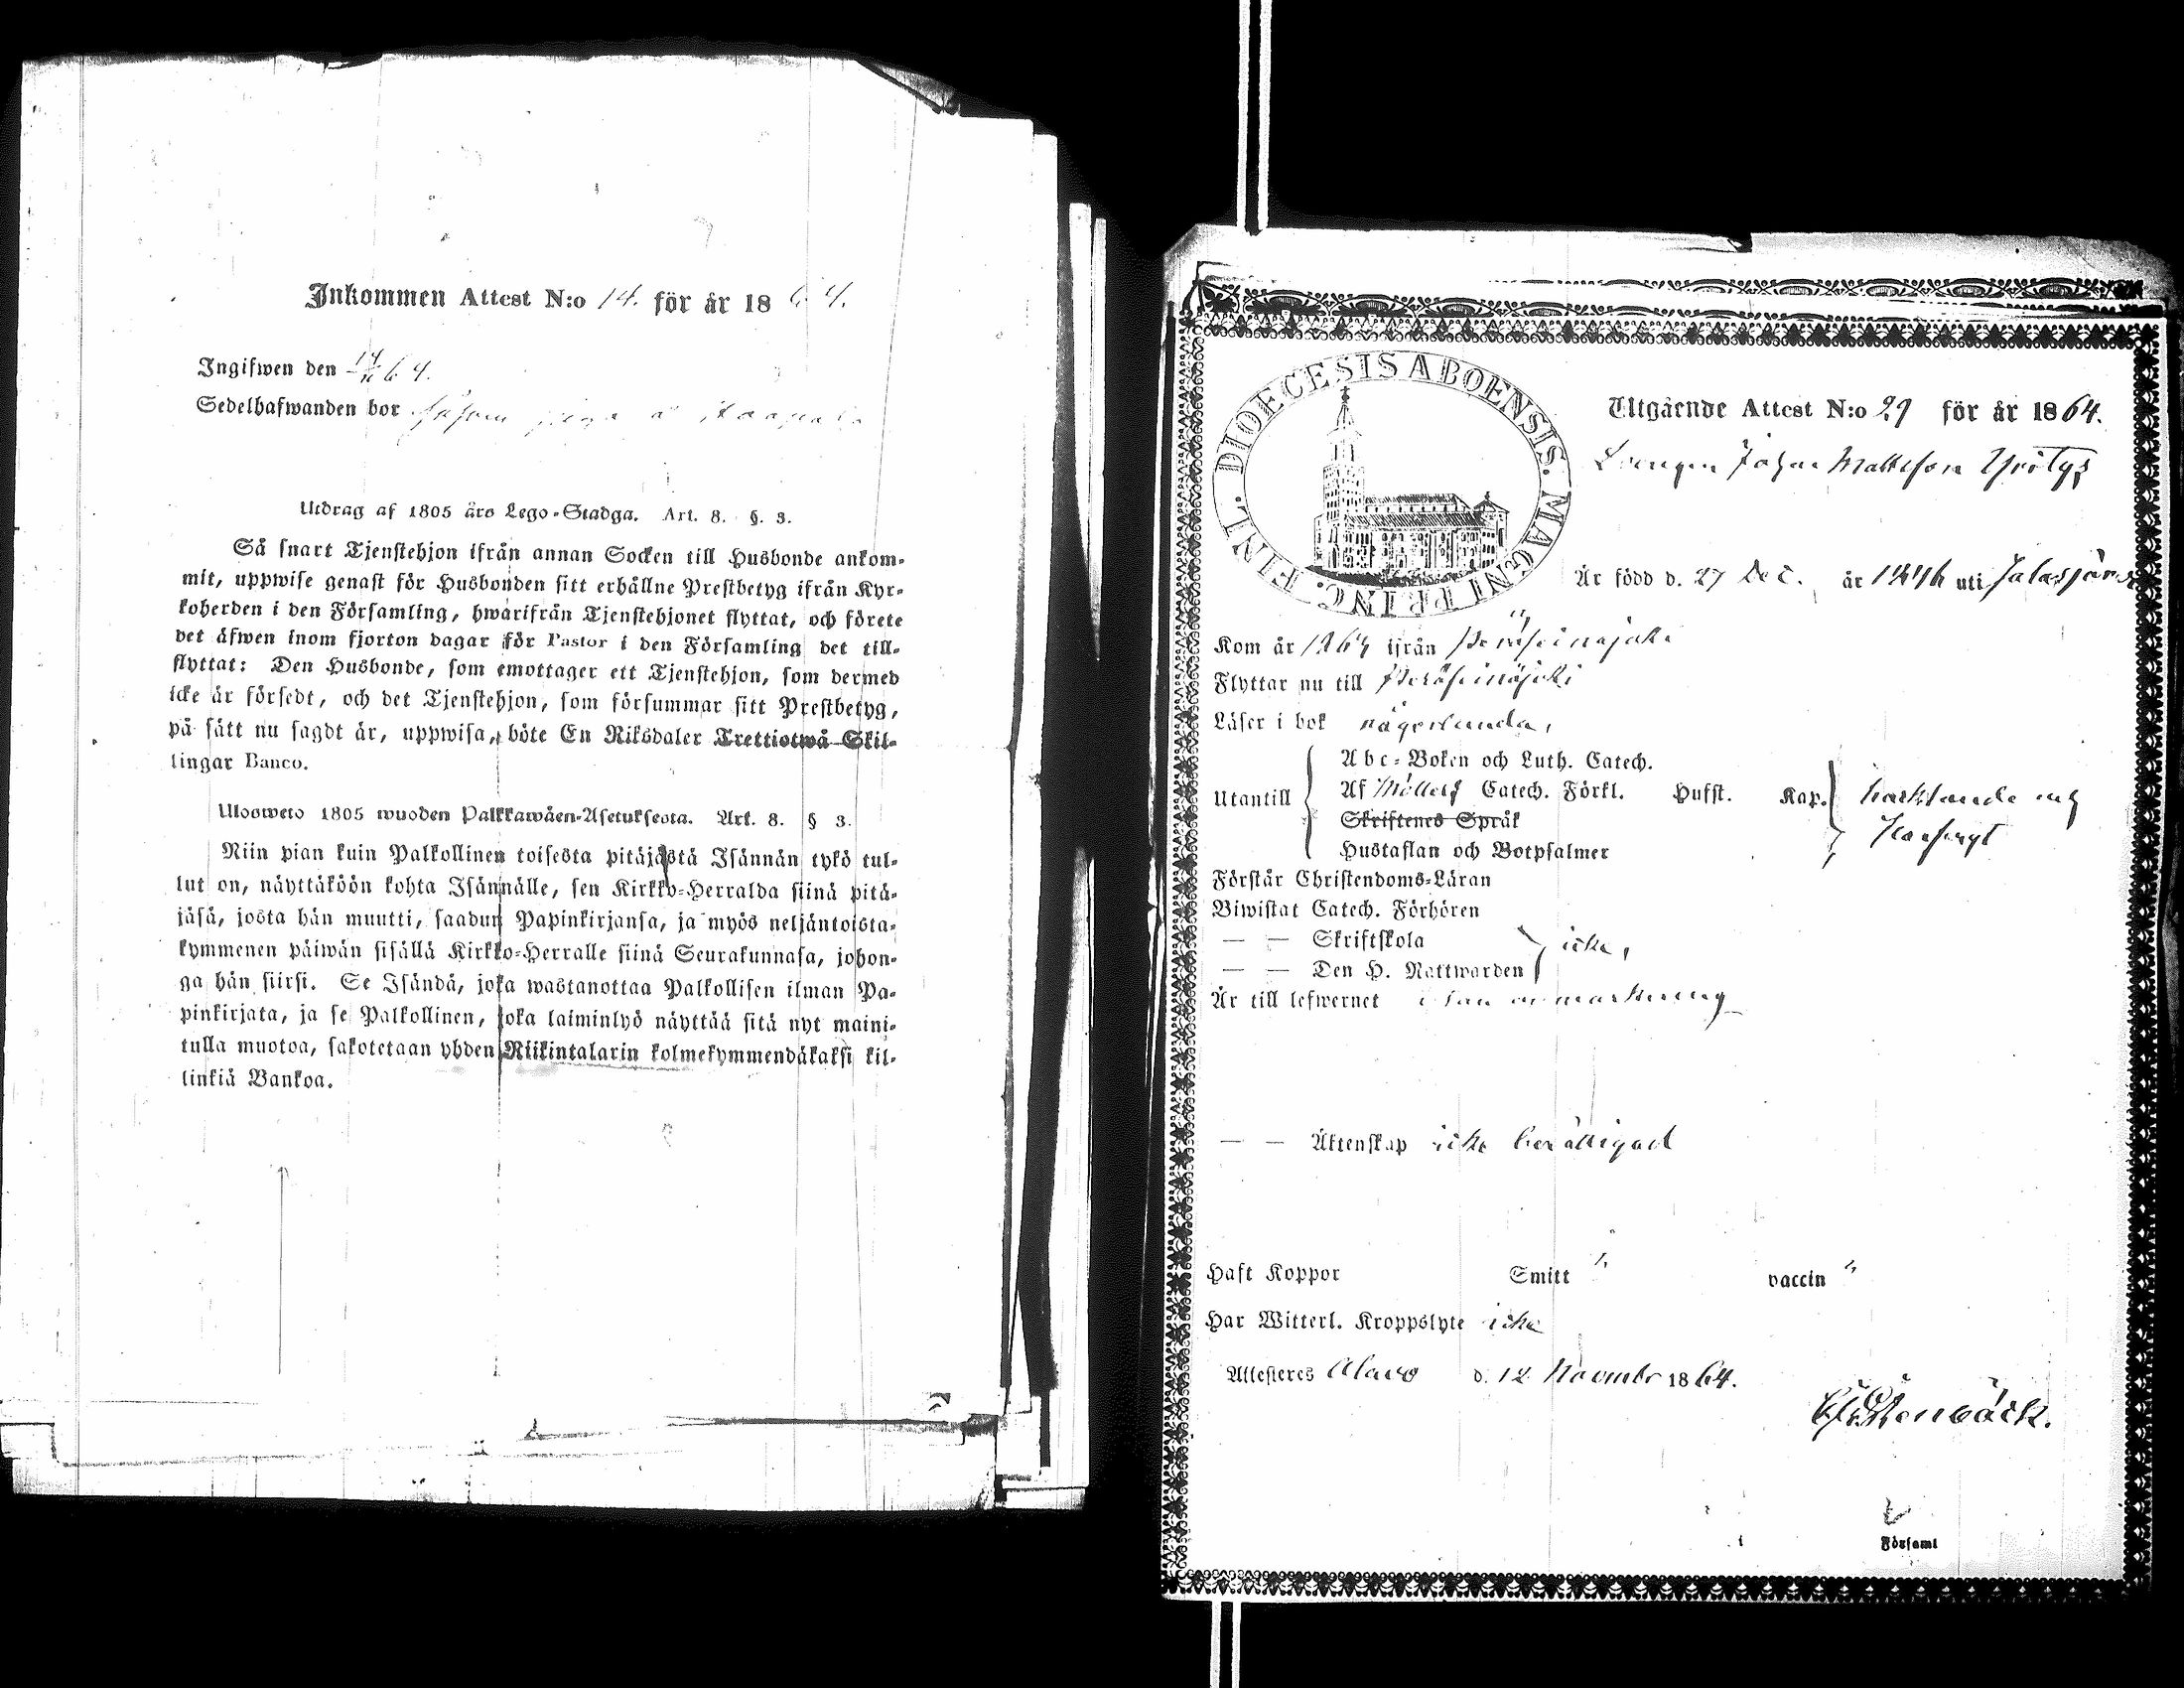 Inkommen Attest N:o 14. för år 1864.
Ingifwen den 14/11 64.
Sedelhafwanden bor såsom piga å
Utdrag af 1805 års Lego-Stadga. Art. 8. §. 3.
Så snart Tjenstehjon ifrån annan Socken till Husbonde ankom-
mit, uppwise genast för Husbonden sitt erhållne Prestbetyg ifrån Kyr-
koherden i den Församling, hwarifrån Tjenstehjonet flyttat, och förete
det äfwen inom fjorton dagar för Pastor i den Församling det till-
flyttat: Den Husbonde, som emottager ett Tjenstehjon, som dermed
icke är försedt, och det Tjenstehjon, som försummar sitt Prestbetyg,
på sätt nu sagdt är, uppwisa, böte En Riksdaler Trettiotwå Skil-
lingar Banco.
Ulosweto 1805 wuoden Palkkawäen-Asetuksesta. Art. 8. § 3.
Niin pian kuin Palkollinen toisesta pitäjästä Isännän tykö tul-
lut on, näyttäköön kohta Isännälle, sen Kirkko-Herralda siinä pitä-
jäsä, josta hän muutti, saadun Papinkirjansa, ja myös neljäntoista-
kymmenen päiwän sisällä Kirkko-Herralle siinä Seurakunnasa, johon-
ga hän siirsi. Se Isändä, joka wastanottaa Palkollisen ilman Pa-
pinkirjata, ja se Palkollinen, joka laiminlyö näyttää sitä nyt maini-
tulla muotoa, sakotetaan yhden Riikintalarin kolmekymmendäkaksi kil-
linkiä Bankoa.
DIOECESIS ABOENSIS. MAGNI PRINC. FINL.
Utgående Attest N:o 29 för år 1864.
Drengen Johan Mattsson Yritys
Är född d. 27 Dec. år 1846 uti Jalasjärvi
Kom år 1864 ifrån Peräseinäjoki
Flyttar nu till Peräseinäjoki
Läser i bok någorlunda,
Utantill
Abc-Boken och Luth. Catech.
Af Möllers Catech. Förkl. Husst. Kap.
Skriftenes Språk
Hustaflan och Botpsalmer
Förstår Christendoms-Läran
Biwistat Catech. Förhören
— — Skriftskola
— — Den H. Nattwarden
icke,
Är till lefwernet utan anmärkning
— — Äktenskap icke berättigad
Haft Koppor Smitt " vaccin "
Har Witterl. Kroppslyte icke
Attesteres Alavo d. 12 Novembr 1864.
Församl